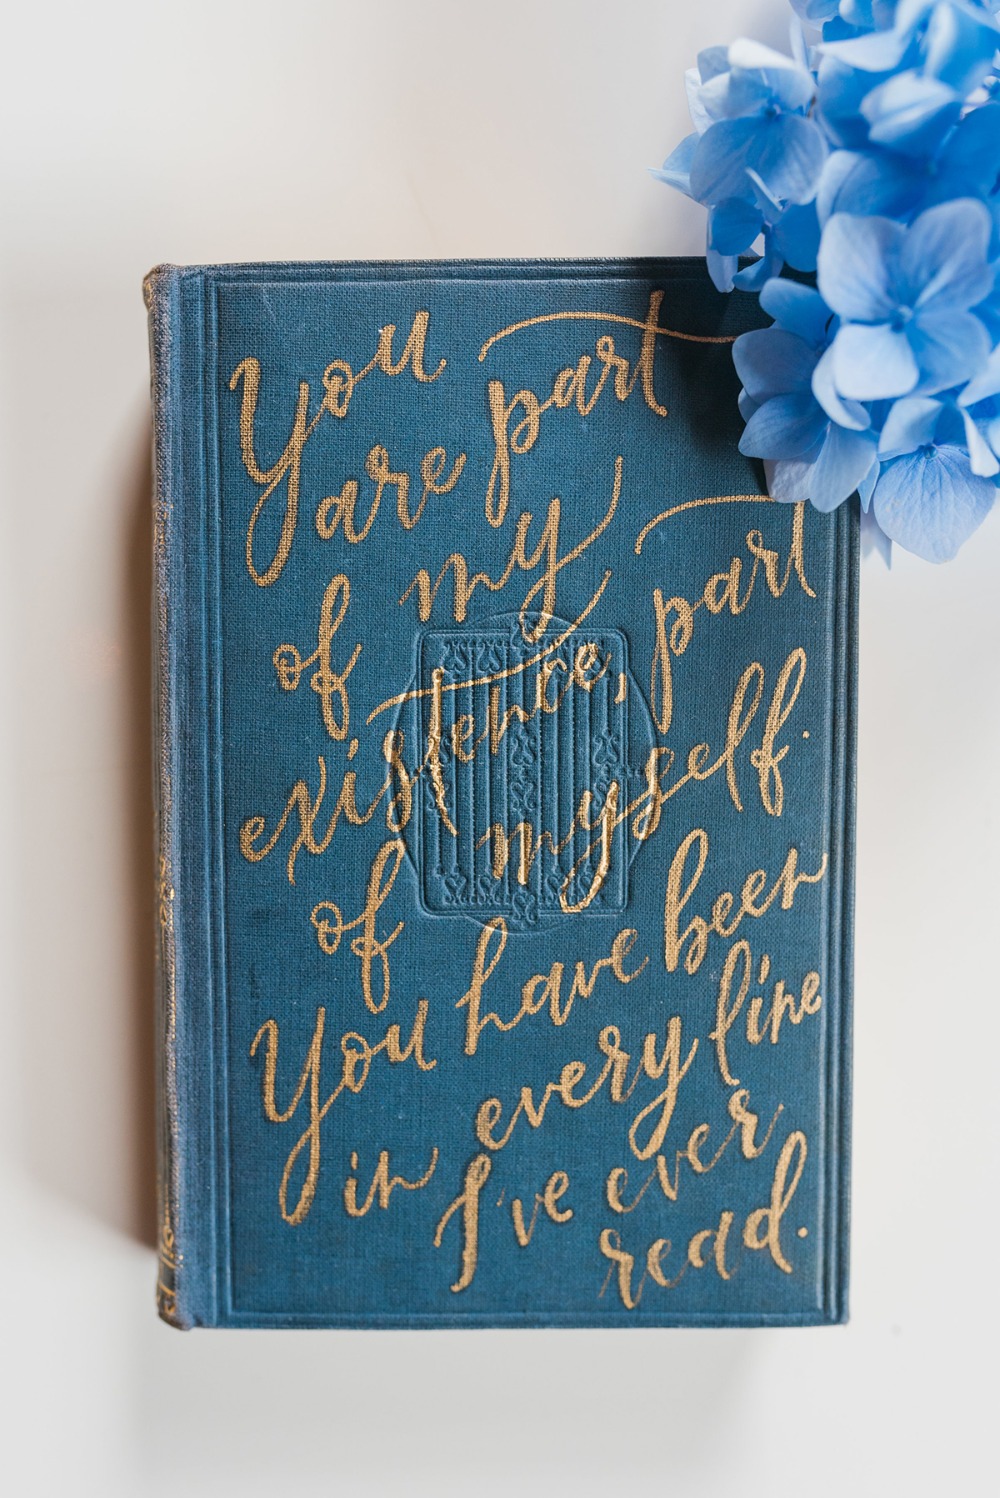 You
are part
of my
existence, part
of myself.
You have been
in every line
I've ever
read.